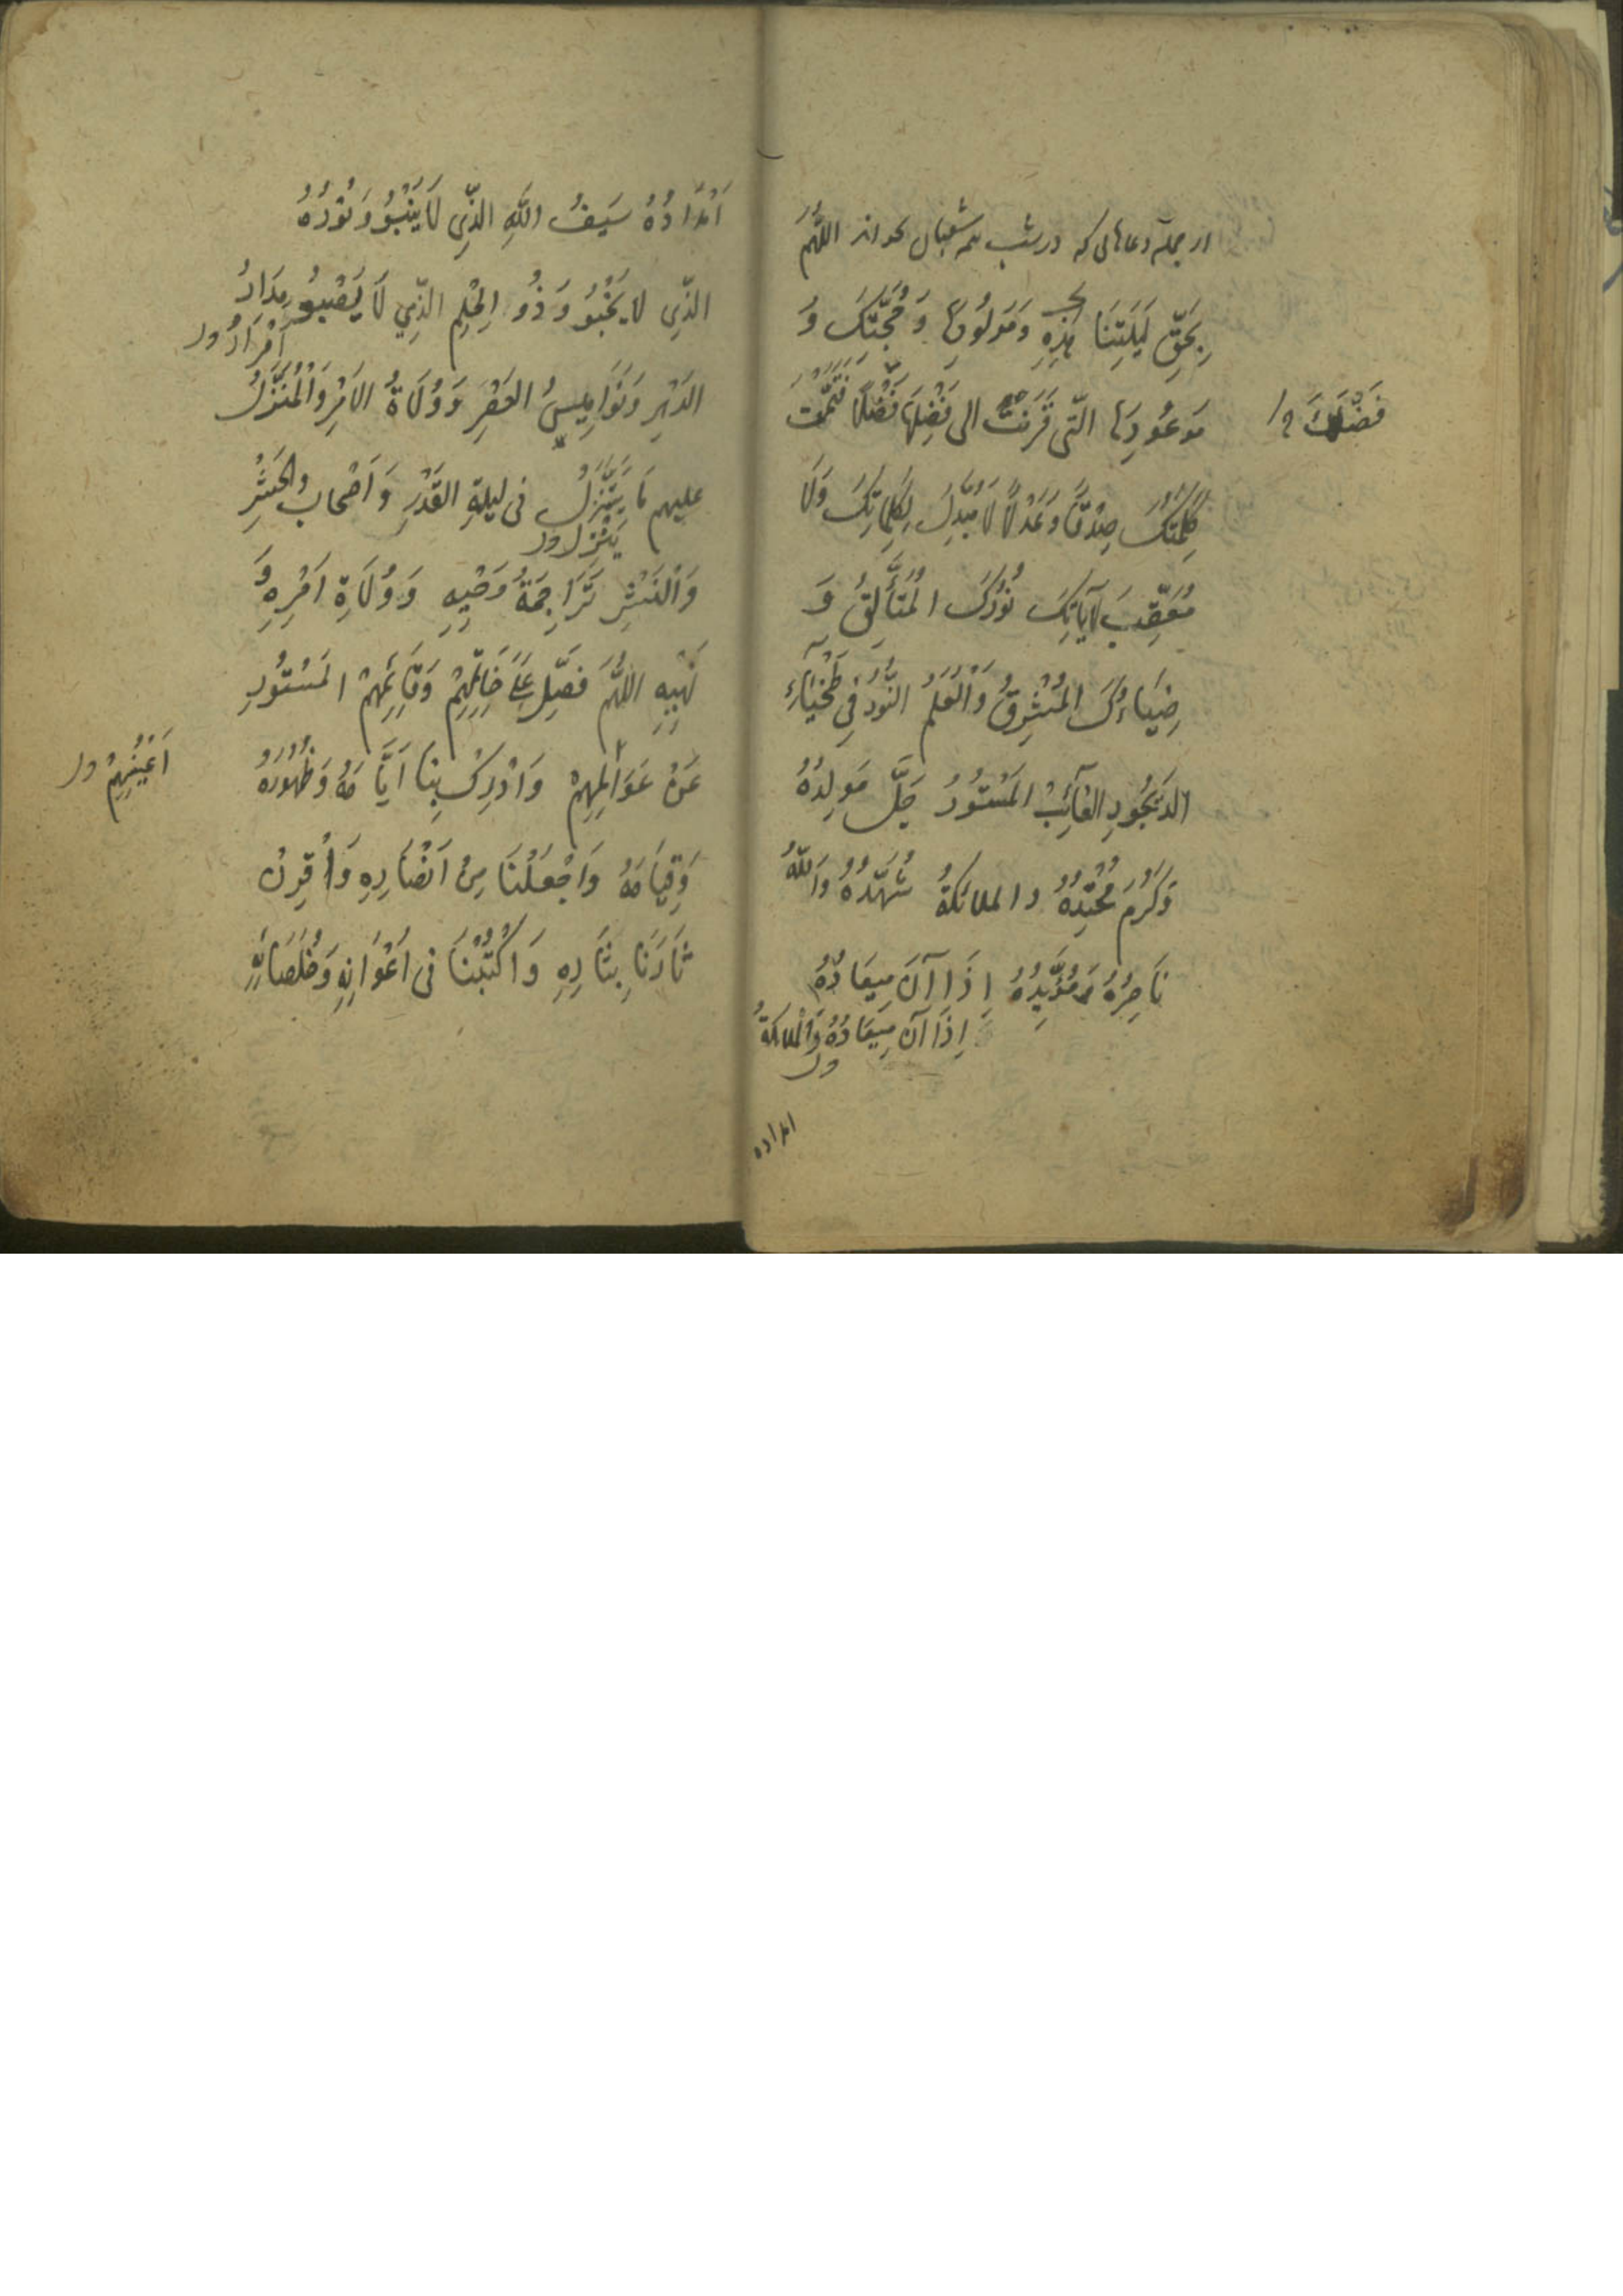 از جمله دعاهائی که در شب نیمه شعبان بخوانند اللَّهُمَّ
بِحَقِّ لَيْلَتِنَا هٰذِهِ وَمَولُودِهَا وَحُجَّتِكَ وَ
مَوعُودِهَا الَّتی قَرَنْتَ الی فَضْلِهَا فَضْلًا فَتَمَّت
فَضْلَكَ
كَلِمَتُكَ صِدْقًا وَعَدْلًا لَا مُبَدِّلَ لِكَلِمَاتِكَ وَلَا
مُعَقِّبَ لِآيَاتِكَ نُورُكَ الْمُتَأَلِّقُ وَ
ضِيَاءُكَ الْمُشْرِقُ وَالْعَلَمُ النُّورُ فِي طَخْيَاءِ
الدَّيْجُورِ الغَائِبُ الْمَسْتُورُ جَلَّ مَولِدُهُ
وَكَرُمَ مَحْتِدُهُ والملائكةُ شُهَّدُهُ وَاللّهُ
نَاصِرُهُ وَمُؤَيِّدُهُ إِذَا آنَ مِيعَادُهُ
إِذَا آنَ مِيعَادُهُ وَالْمَلائكَةُ
امداده
أَمْدَادُهُ سَيفُ اللهِ الَّذِی لَا يَنْبُوُ وَنُورُهُ
الَّذِی لا يَخْبُوُ وَذُو الْحِلْمِ الَّذِي لَا يَصْبُوُ مِدَارُ
الدَّهْرِ وَنَوَامِيسُ العَصْرِ وَوُلَاةُ الأَمْرِ وَالْمُنَزَّلُ
عليهم مَا يَتَنَزَّلُ فی ليلةِ القَدْرِ وَأَصْحَابُ الْحَشْرِ
يَنْزِلُ ول
وَالْنَشْرِ تَرَاجِمَةُ وَحْيِهِ وَوُلَاةِ اَمْرِهِ وَ
نَهْيِهِ اللَّهُمَّ فَصَلِّ عَلَى خَاتِمِهِمْ وَقَائِمِهِمْ الْمَسْتُورِ
عَنْ عَوَالِمِهِمْ وَاَدْرِكْ بِنَا اَيَّامَهُ وَظُهُورَهُ
اَعْيُنِهِمْ ول
وَقِيَامَهُ وَاجْعَلْنَا مِنْ اَنْصَارِهِ وَاَقْرِنْ
ثَارَنَا بِثَارِهِ وَاكْتُبْنَا فی اَعْوَانِهِ وَخُلَصَائِهِ